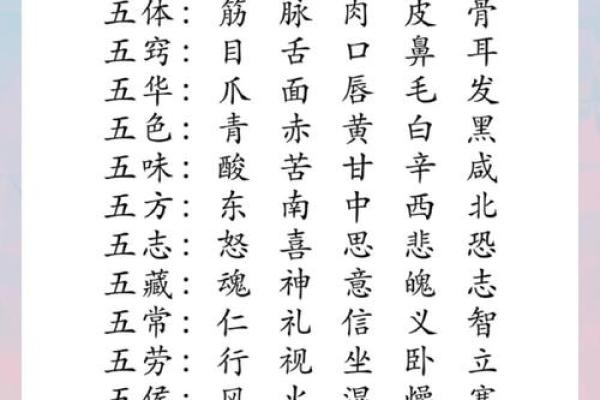 五体：筋 脉 肉 皮 骨
五窍：目 舌 口 鼻 耳
五华：爪 面 唇 毛 发
五色：青 赤 黄 白 黑
五味：酸 苦 甘 辛 咸
五方：东 南 中 西 北
五志：怒 喜 思 悲 恐
五藏：魂 神 意 魄 志
五常：仁 礼 信 义 智
五劳：行 视 坐 卧 立
五侯：风 火 湿 燥 寒